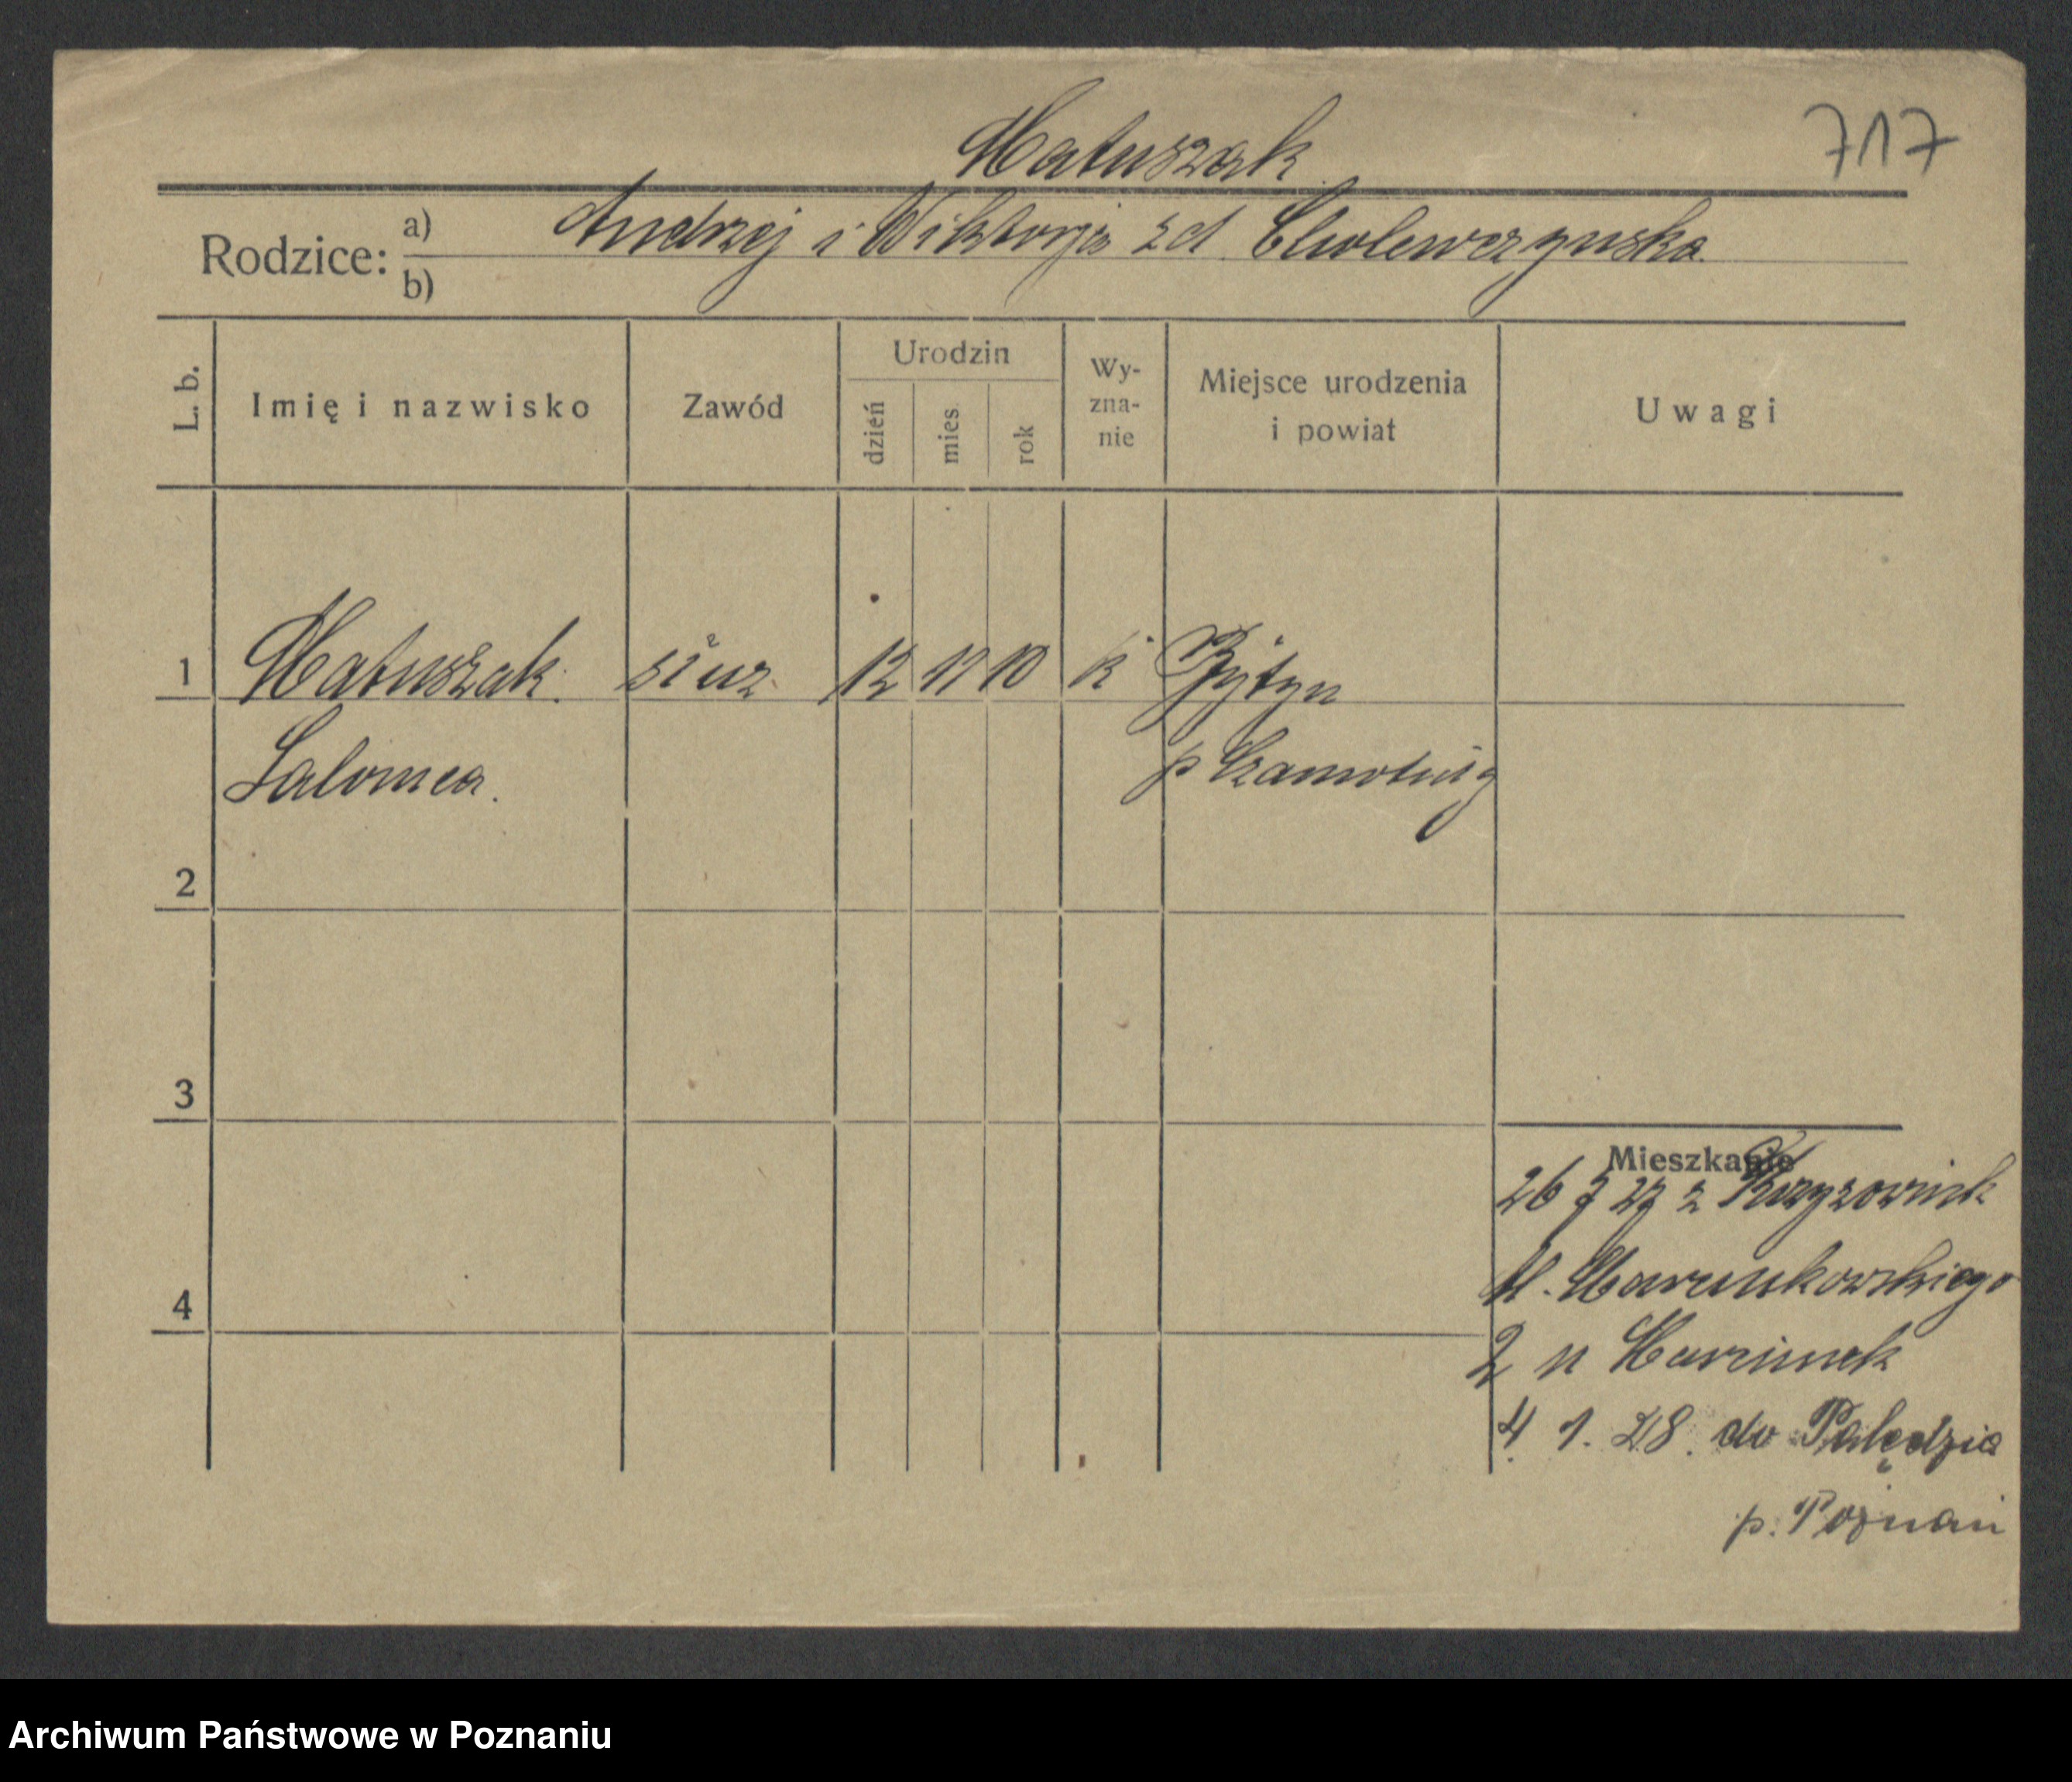 Matuszak
717
Rodzice: a) Andrzej i Wiktorja z d. Cholewczynska
b)
L. b.
Imię i nazwisko
Zawód
Urodzin
dzień
mies
rok
Wy-
zna-
nie
Miejsce urodzenia
i powiat
Uwagi
1 Matuszak służ 12 11 10 k Bytyn
Salomea. p Szamotuły
2
3
4
Mieszkanie
26 7 27 z Krzyzownik
2 u
4 1. 28. do Palędzia
p. Poznań
Archiwum Państwowe w Poznaniu